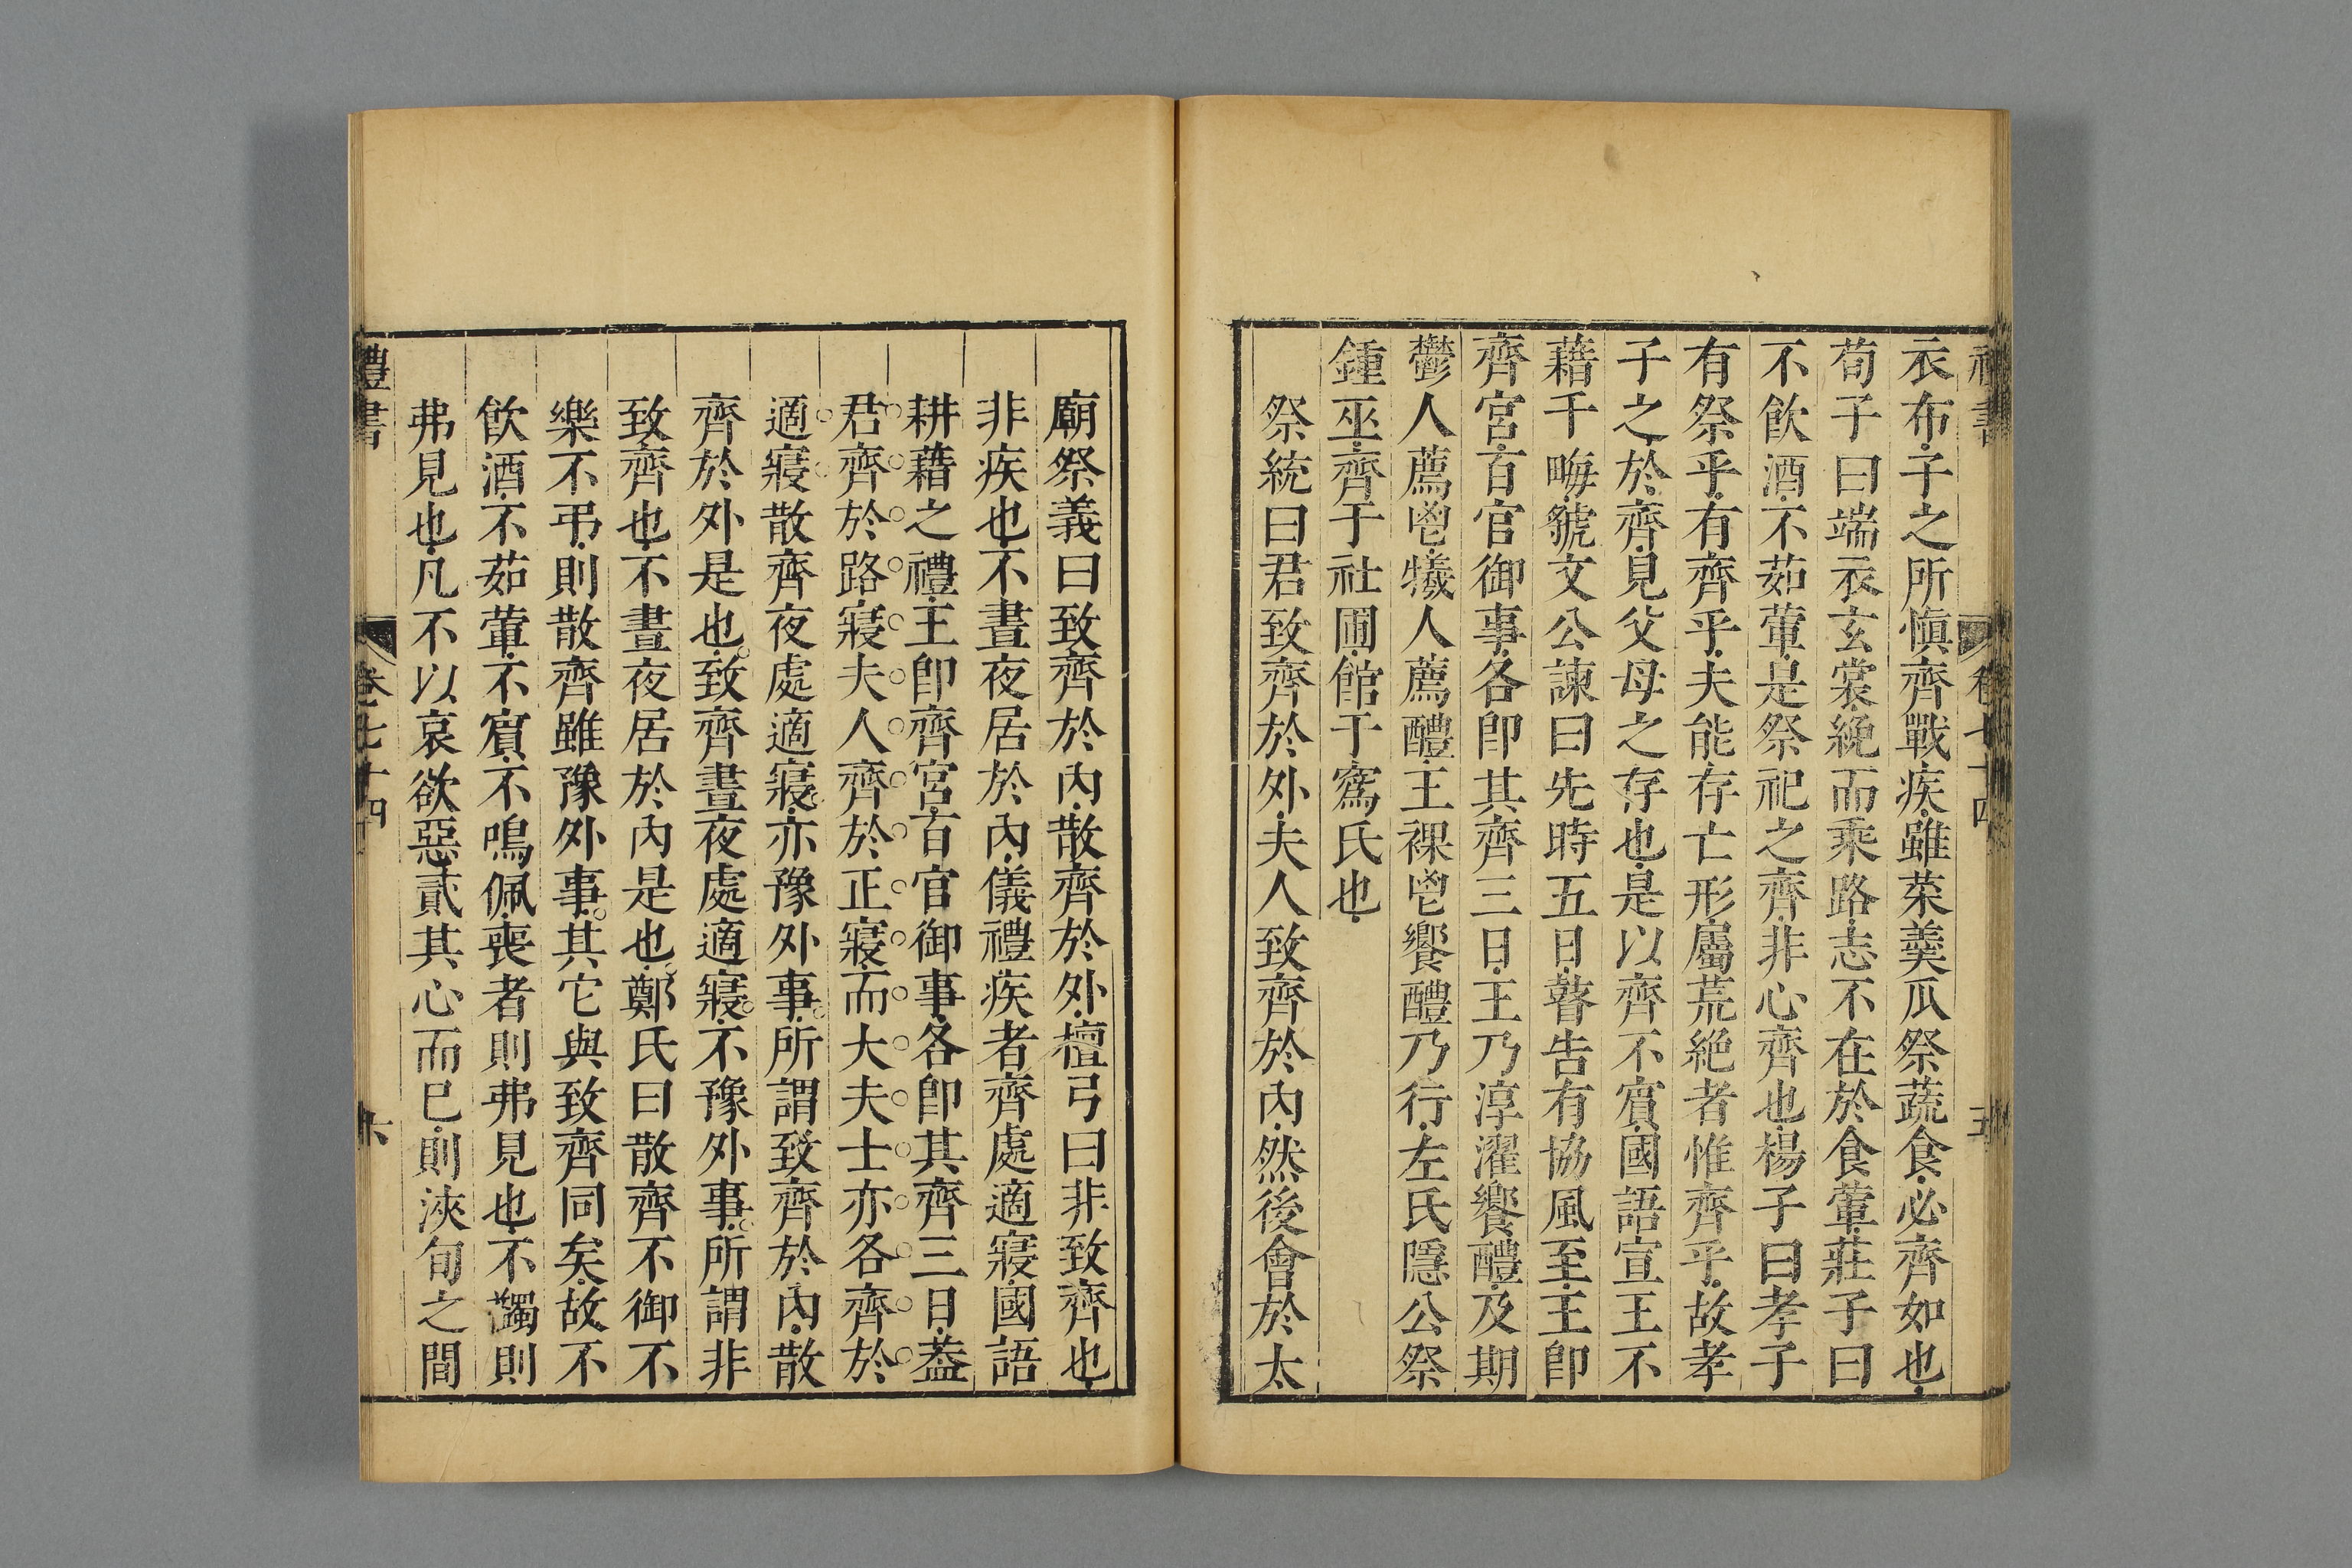 衣布子之所愼齊戰疾雖菜羹瓜祭蔬食必齊如也
荀子曰端衣玄裳絻而乘路志不在於食葷莊子曰
不飮酒不茹葷是祭祀之齊非心齊也楊子曰孝子
有祭乎有齊乎夫能存亡形屬荒絕者惟齊乎故孝
子之於齊見父母之存也是以齊不賓國語宣王不
藉千畮虢文公諫曰先時五日瞽告有協風至王卽
齊宮百官御事各卽其齊三日王乃淳濯饗醴及期
鬱人薦鬯犧人薦醴王祼鬯饗醴乃行左氏隱公祭
鍾巫齊于社圃館于寪氏也
祭統曰君致齊於外夫人致齊於內然後會於太
廟祭義曰致齊於內散齊於外檀弓曰非致齊也
非疾也不晝夜居於內儀禮疾者齊處適寢國語
耕藉之禮王卽齊宮百官御事各卽其齊三日葢
君齊於路寢夫人齊於正寢而大夫士亦各齊於
適寢散齊夜處適寢亦豫外事所謂致齊於內散
齊於外是也致齊晝夜處適寢不豫外事所謂非
致齊也不晝夜居於內是也鄭氏曰散齊不御不
樂不弔則散齊雖豫外事其它與致齊同矣故不
飮酒不茹葷不賓不鳴佩喪者則弗見也不蠲則
弗見也凡不以哀欲惡貳其心而已則浹旬之間
禮書
卷七十四
六